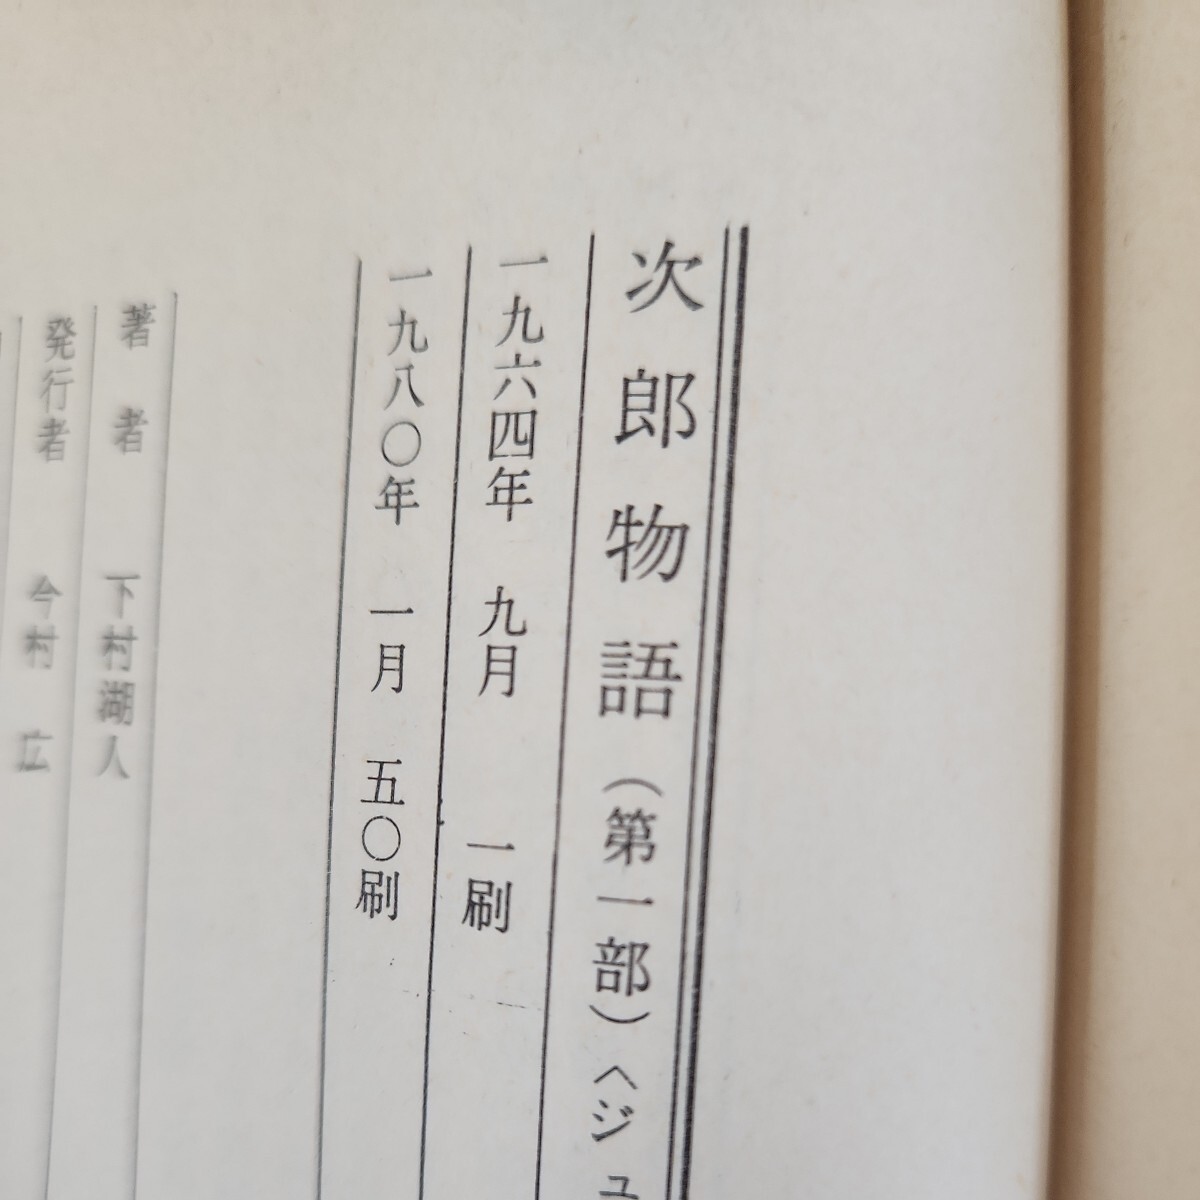 次郎物語（第一部）〈ジュ
一九六四年 九月 一刷
一九八〇年 一月 五〇刷
著者 下村湖人
発行者 今村広